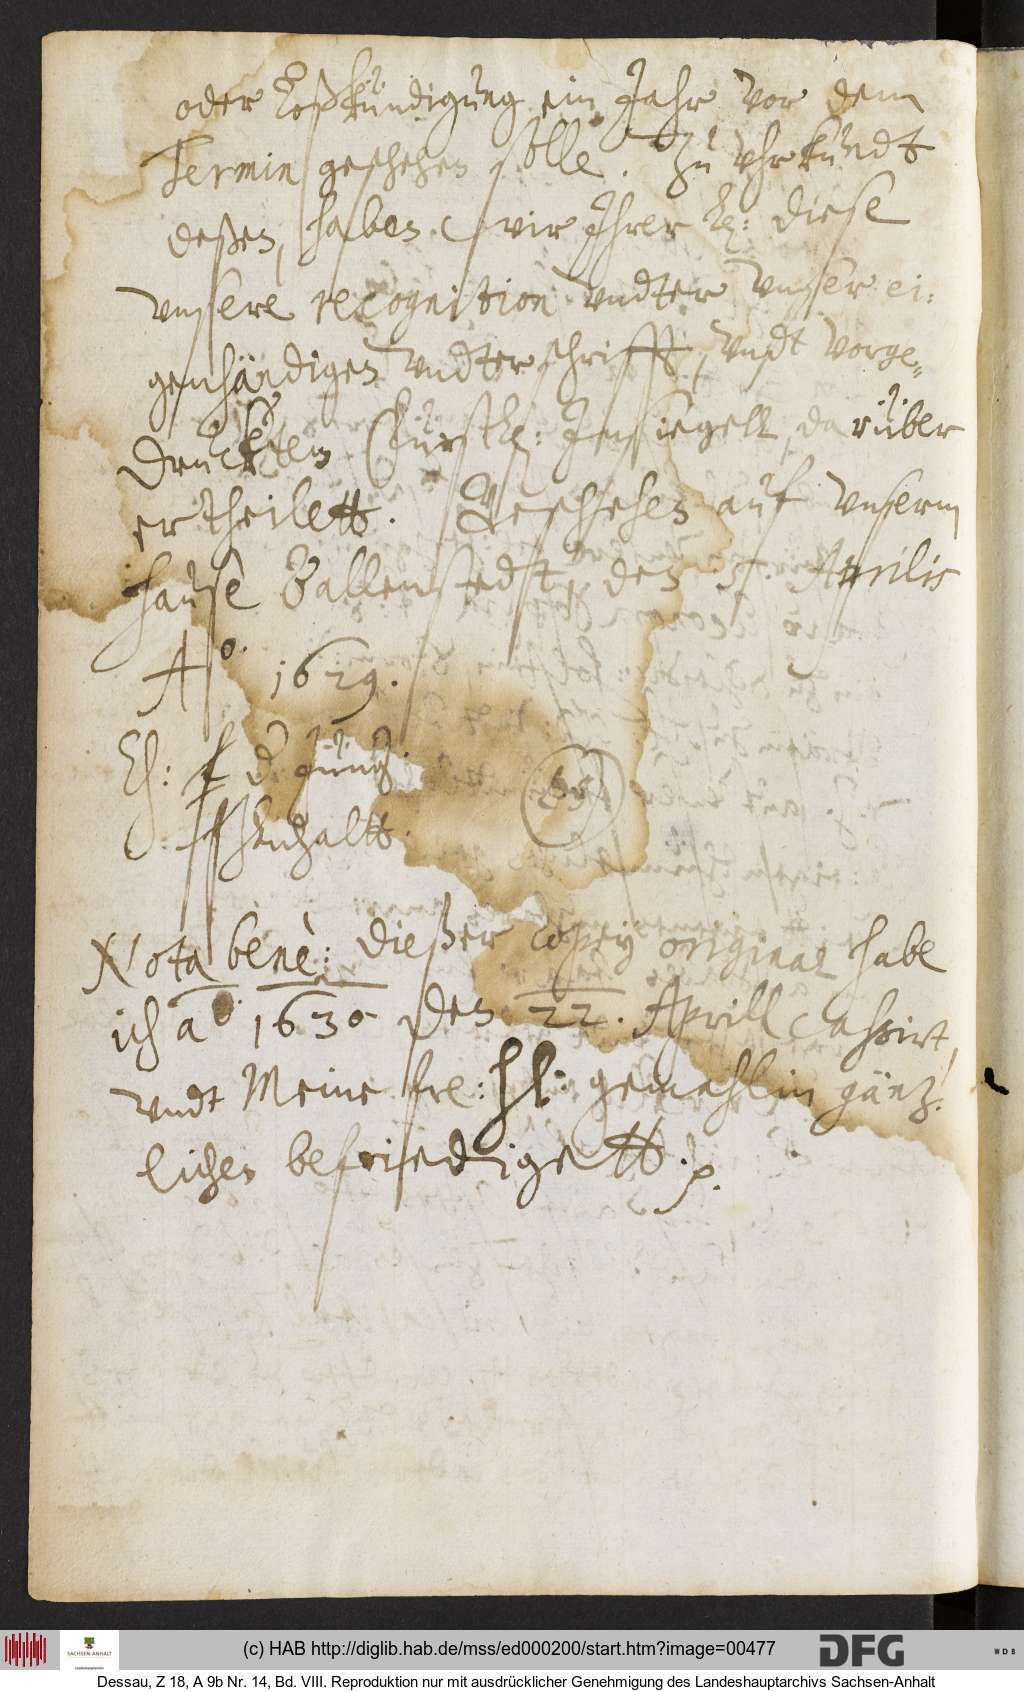 oder Loßkündigung ein Jahr vor dem
Termin geschehen solle. Zu uhrkundt
deßen, haben wir Ihrer L: diese
unsere recognition undter unser ei:
genhändigen undterschrifft, undt vorge-
drucktem Fürstl: Insiegell, darüber
ertheilett. Geschehen auf unserm
hause Ballenstedt, den 5. Aprilis
Ao. 1629.
Ch: F d. Jüng.
F. z. Anhaltt.
Nota benè: Dießer copey original habe
ich ao 1630 den 22. Aprill cassirt,
undt Meine fre: hl: gemahlin gäntz:
lichen befriedigett. p.
(c) HAB http://diglib.hab.de/mss/ed000200/start.htm?image=00477
SACHSEN-ANHALT
Landeshauptarchiv
DFG
WDB
Dessau, Z 18, A 9b Nr. 14, Bd. VIII. Reproduktion nur mit ausdrücklicher Genehmigung des Landeshauptarchivs Sachsen-Anhalt